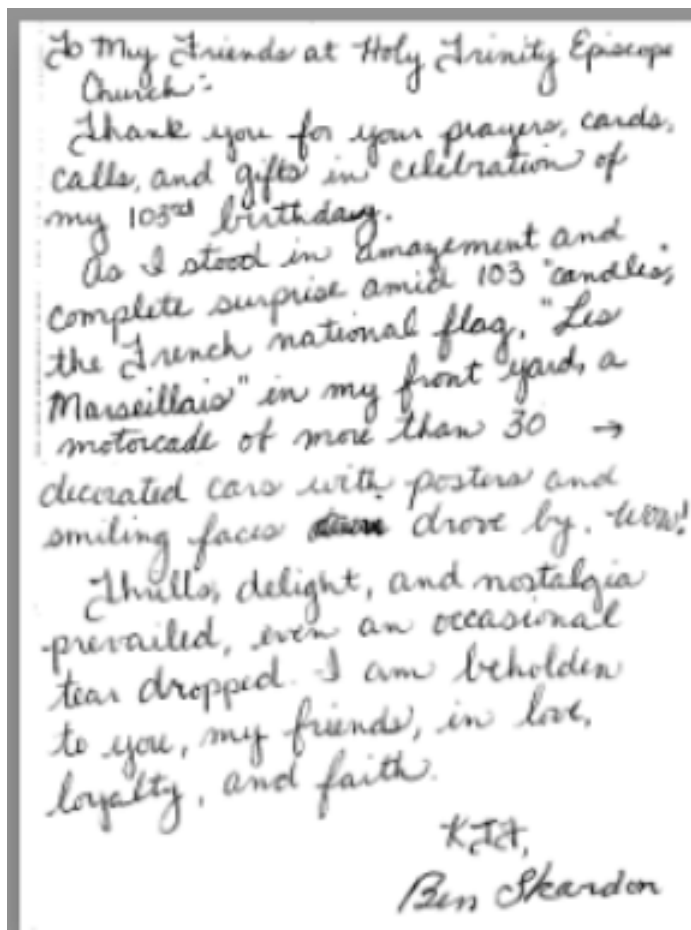 To My Friends at Holy Trinity Episcope
Church:-
Thank you for your prayers, cards,
calls, and gifts in celebration of
my 103rd birthday.
As I stood in amazement and
complete surprise amid 103 "candles",
the French national flag, "Les
Marseillais" in my front yard, a
motorcade of more than 30 →
decorated cars with posters and
smiling faces drove by. WOW!
Thrills, delight, and nostalgia
prevailed, even an occasional
tear dropped. I am beholden
to you, my friends, in love,
loyalty, and faith.
KTF,
Ben Skardon